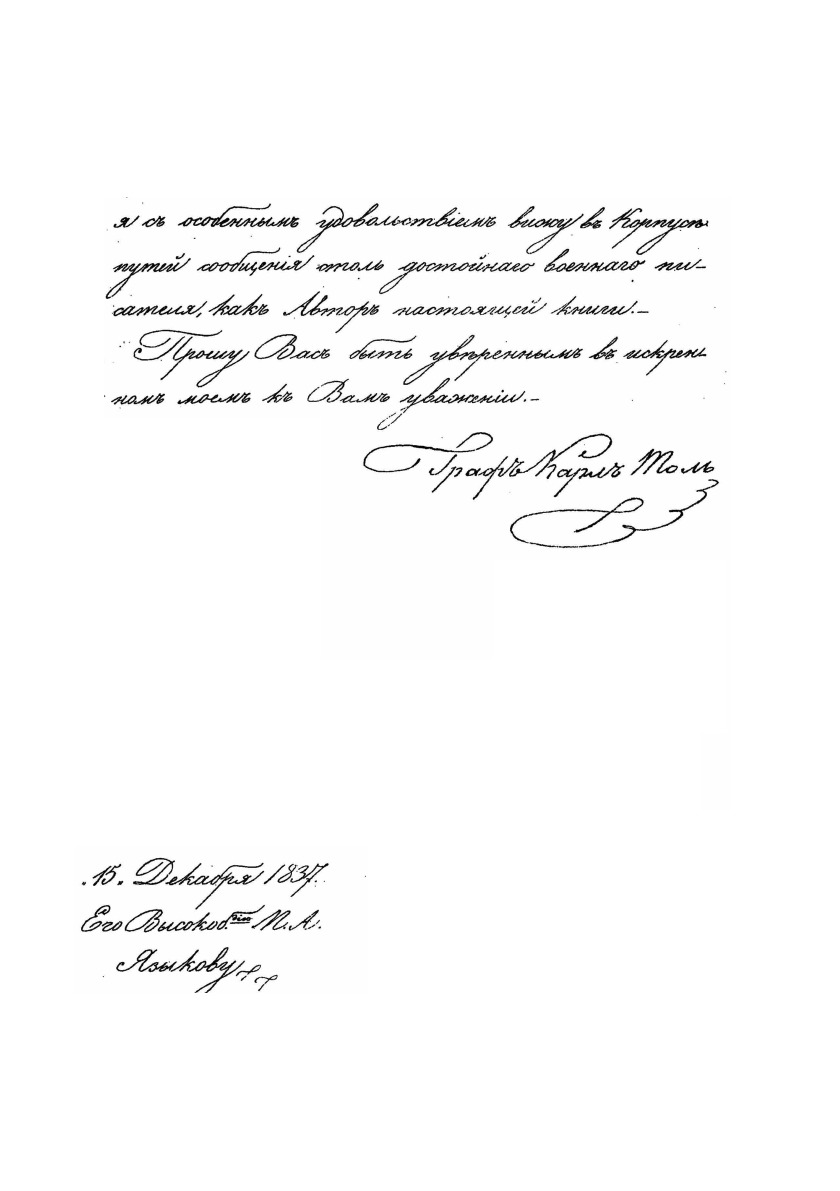 я съ особеннымъ удовольствіемъ вижу въ Корпусѣ
путей сообщенія столь достойнаго военнаго пи-
сателя, какъ Авторъ настоящей книги.—
Прошу Васъ быть увѣреннымъ въ искрен-
номъ моемъ къ Вамъ уваженіи.—
Графъ Карлъ Толь
.15. Декабря 1837.
Его Высокоб.дію П. А.
Языкову